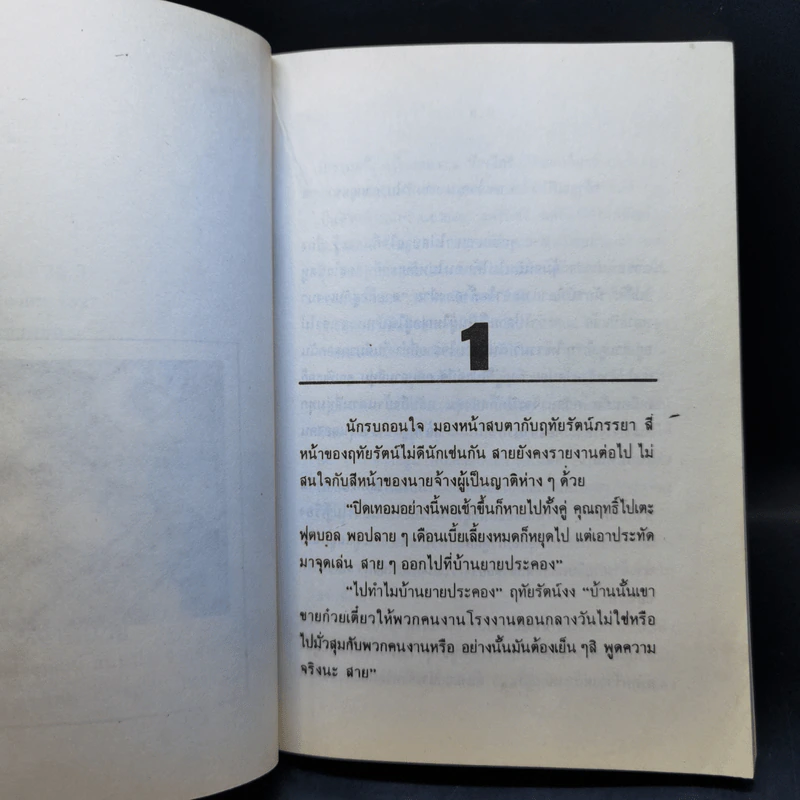 1
นักรบถอนใจ มองหน้าสบตากับฤทัยรัตน์ภรรยา สี
หน้าของฤทัยรัตน์ไม่ดีนักเช่นกัน สายยังคงรายงานต่อไป ไม่
สนใจกับสีหน้าของนายจ้างผู้เป็นญาติห่าง ๆ ด้วย
“ปิดเทอมอย่างนี้พอเช้าขึ้นก็หายไปทั้งคู่ คุณฤทธิ์ไปเตะ
ฟุตบอล พอปลาย ๆ เดือนเบี้ยเลี้ยงหมดก็หยุดไป แต่เอาประทัด
มาจุดเล่น สาย ๆ ออกไปที่บ้านยายประคอง”
“ไปทำไมบ้านยายประคอง” ฤทัยรัตน์งง “บ้านนั้นเขา
ขายก๋วยเตี๋ยวให้พวกคนงานโรงงานตอนกลางวันไม่ใช่หรือ
ไปมั่วสุมกับพวกคนงานหรือ อย่างนั้นมันต้องเย็น ๆสิ พูดความ
จริงนะ สาย”